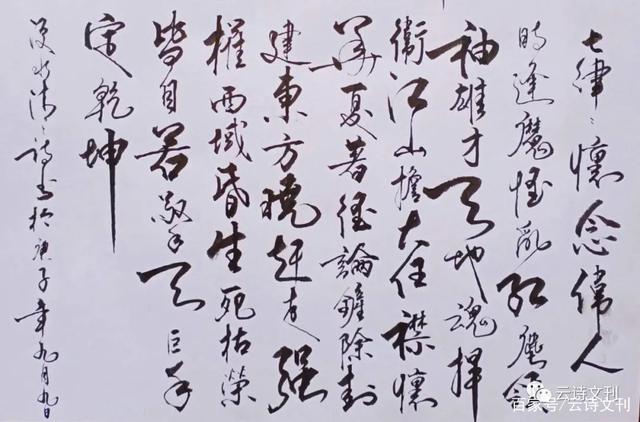 七律：懷念偉人
時逢魔怪亂紅塵领
袖雄才天地魂捍
衛江山擔大任襟懷
華夏著論除封
建東方曉赶走强
權西域昏生死枯榮
皆自若擎天巨手
定乾坤
詩書於庚子年九月九日
云诗文刊
百家号/云诗文刊